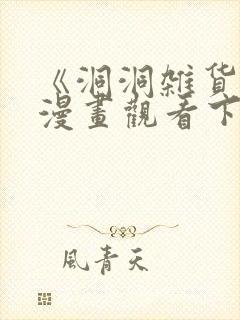 《洞洞雑货
漫畫觀看下
風青天